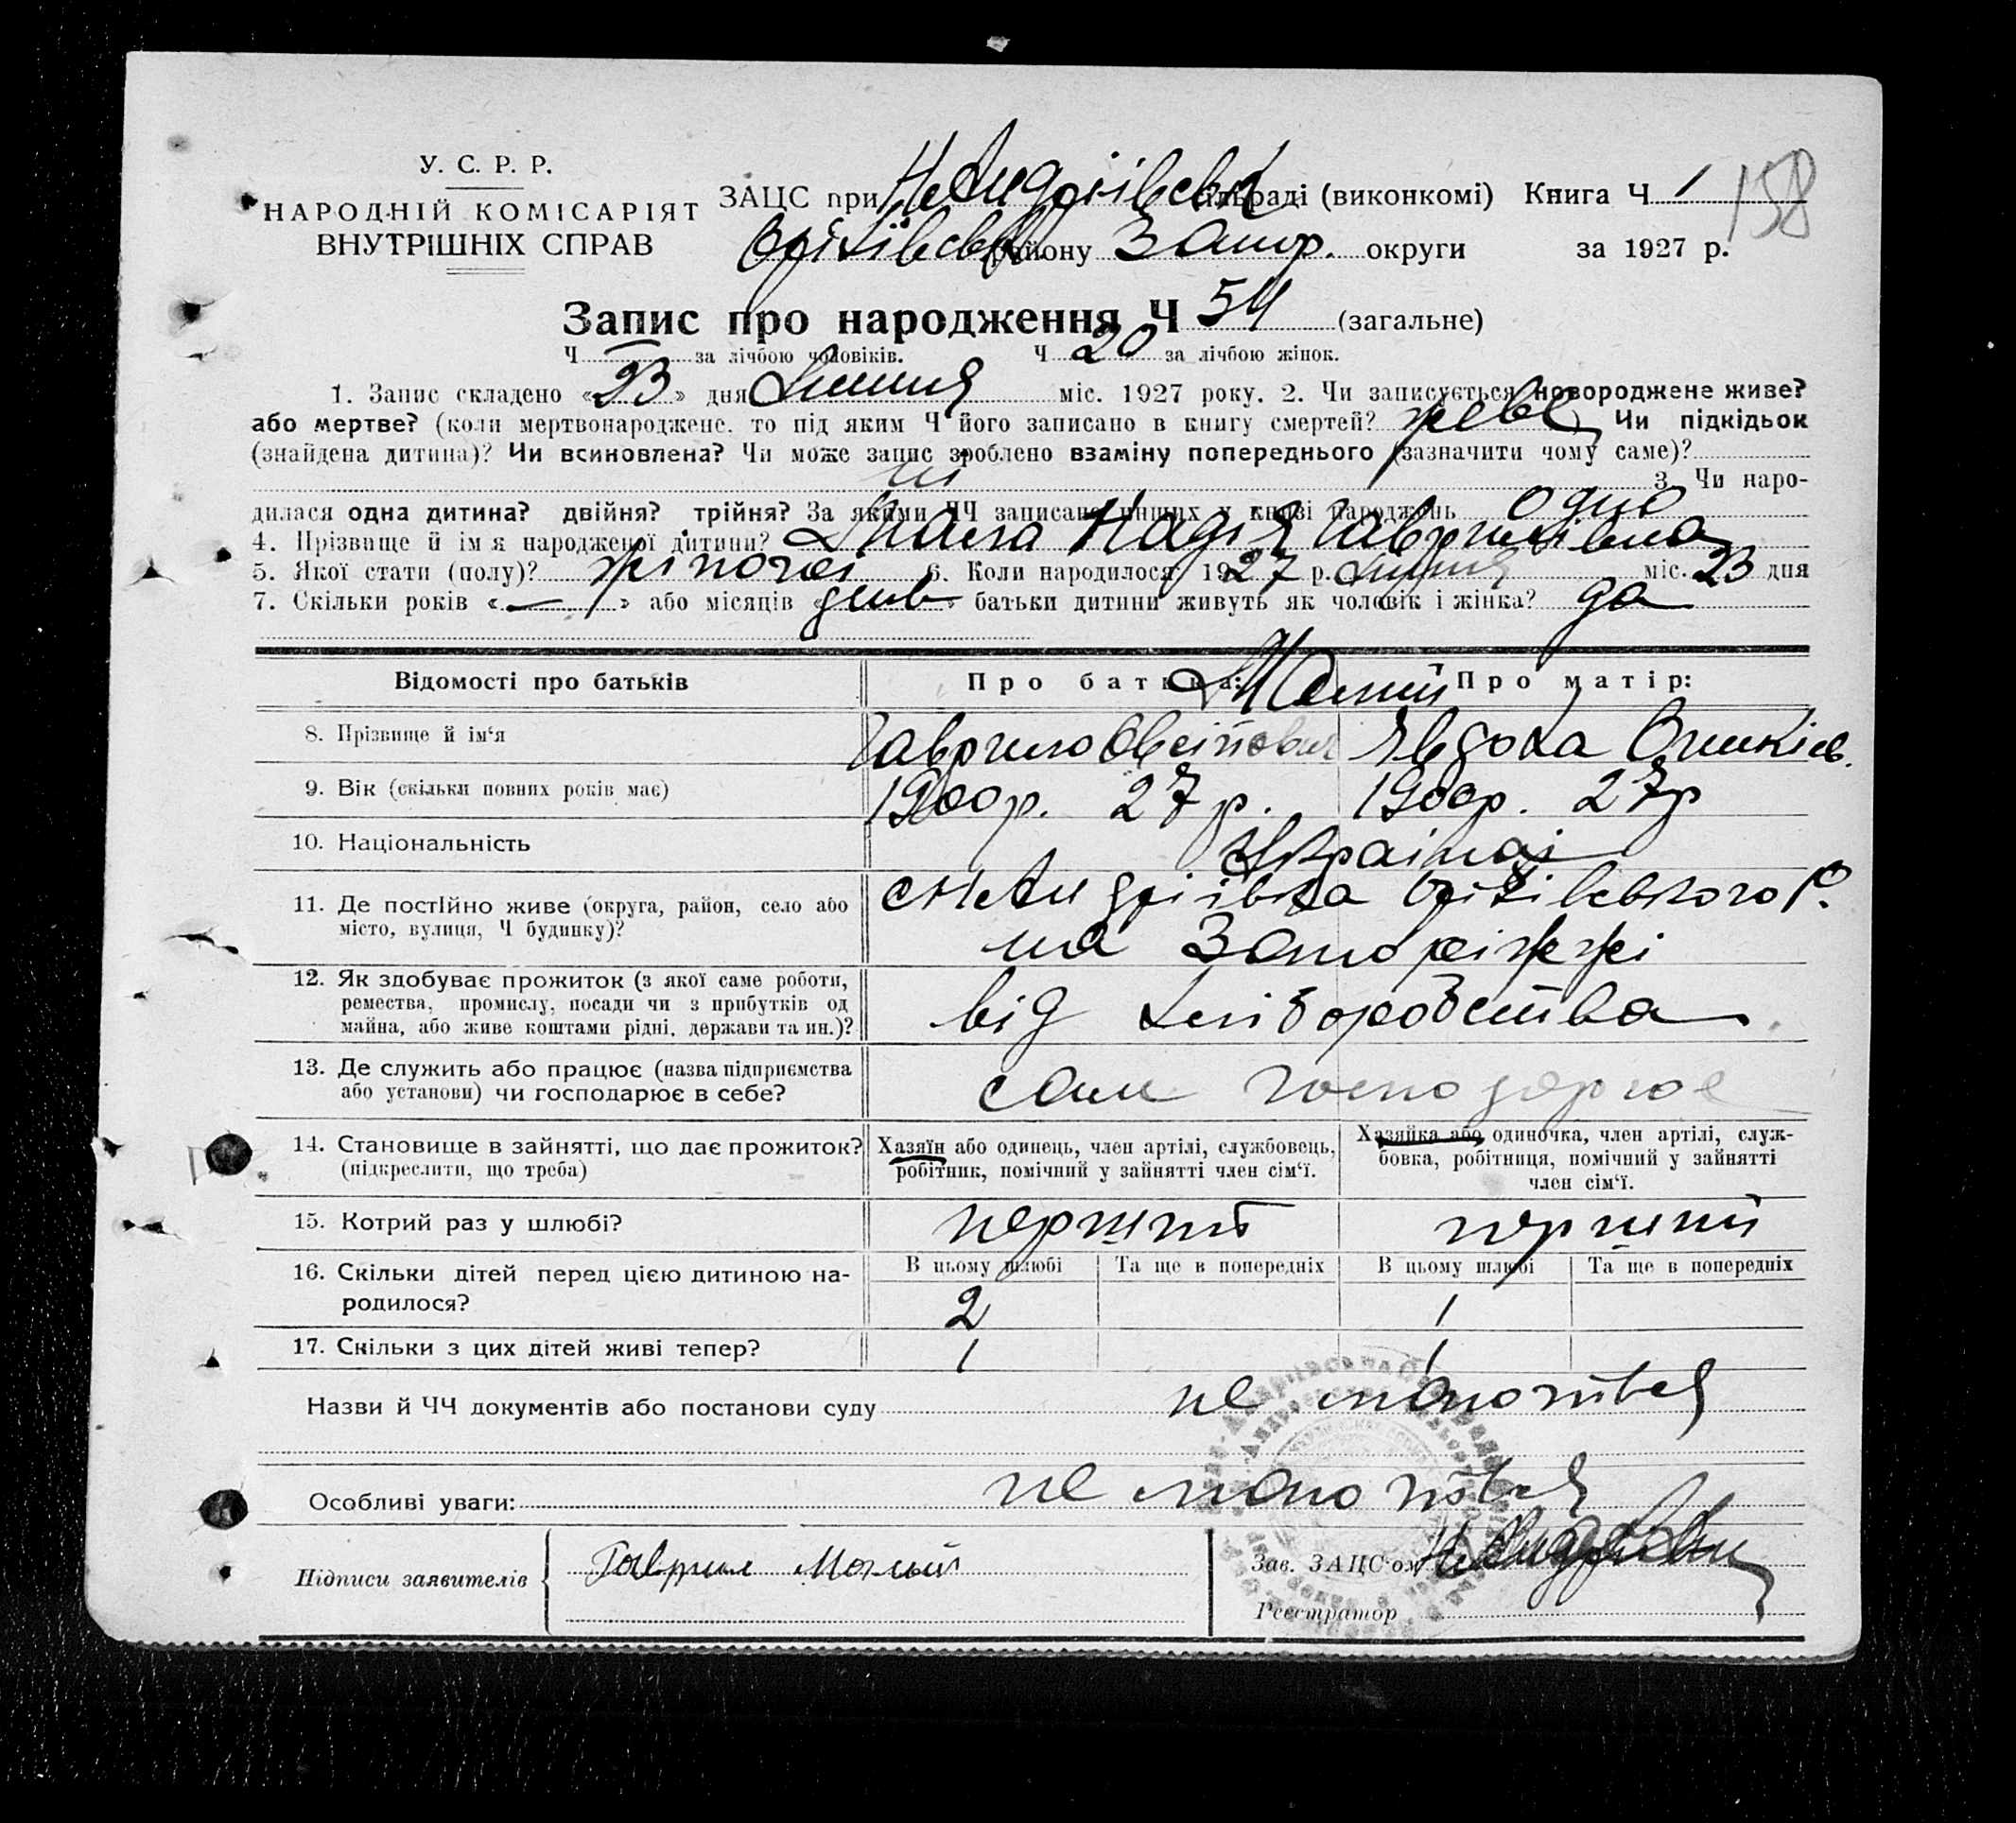 У. С. Р. Р.
НАРОДНІЙ КОМІСАРІЯТ
ВНУТРІШНІХ СПРАВ
158
ЗАЦС при НеАндріївськ сільраді (виконкомі) Книга Ч 1
Оріхівськ району Запор. округи за 1927 р.
Запис про народження Ч 54 (загальне)
Ч — за лічбою чоловіків. Ч 20 за лічбою жінок.
1. Запис складено «23» дня Липня міс. 1927 року. 2. Чи записується новороджене живе?
або мертве? (коли мертвонароджене. то під яким Ч його записано в книгу смертей? живе) Чи підкідьок
(знайдена дитина)? Чи всиновлена? Чи може запис зроблено взаміну попереднього (зазначити чому саме)?
ні 3. Чи наро-
дилася одна дитина? двійня? трійня? За якими ЧЧ записано инших у книзі народжень одно
4. Прізвище й імя народженої дитини? Мала Надія Гаврилівна
5. Якої стати (полу)? жіночої 6. Коли народилося 1927 р. Липня міс. 23 дня
7. Скільки років «—» або місяців « » батьки дитини живуть як чоловік і жінка? да
Відомості про батьків Про батька: Про матір:
Малий
8. Прізвище й ім‘я Гаврило Овсійович Явдоха Оникієв.
9. Вік (скільки повних років має) 1900р. 27 р. 1900р. 27р
10. Національність
11. Де постійно живе (округа, район, село або
місто, вулиця, Ч будинку)?
с НеАндріївка Оріхівського Р.
на Запоріжжі
12. Як здобуває прожиток (з якої саме роботи,
ремества, промислу, посади чи з прибутків од
майна, або живе коштами рідні, держави та ин.)?
від хліборобства
13. Де служить або працює (назва підприємства
або установи) чи господарює в себе?
сам господарює
14. Становище в зайнятті, що дає прожиток?
(підкреслити, що треба)
Хазяїн або одинець, член артілі, службовець,
робітник, помічний у зайнятті член сім‘ї.
Хазяйка або одиночка, член артілі, служ-
бовка, робітниця, помічний у зайнятті
член сім‘ї.
15. Котрий раз у шлюбі? перший перший
16. Скільки дітей перед цією дитиною на-
родилося?
В цьому шлюбі Та ще в попередніх В цьому шлюбі Та ще в попередніх
2 1
17. Скільки з цих дітей живі тепер? 1 1
Назви й ЧЧ документів або постанови суду не малось
Особливі уваги: не мало
Підписи заявителів Гаврил Малый
Зав. ЗАЦС‘ом
Реєстратор